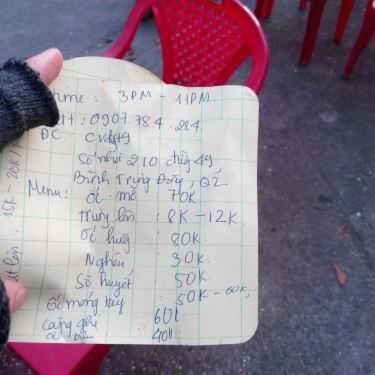 Time: 3PM - 11PM
: 0907.784.284
ĐC
số nhà 210, đường 49
Bình Trưng Đông, Q2
Menu: Ốc mỡ 70K
Trứng lộn: 8K - 12K
Ốc hương : 80K
Nghêu : 30K
Sò huyết : 50K
Ốc móng tay : 50K - 60K
Càng ghẹ 60K
40K
15K - 20K